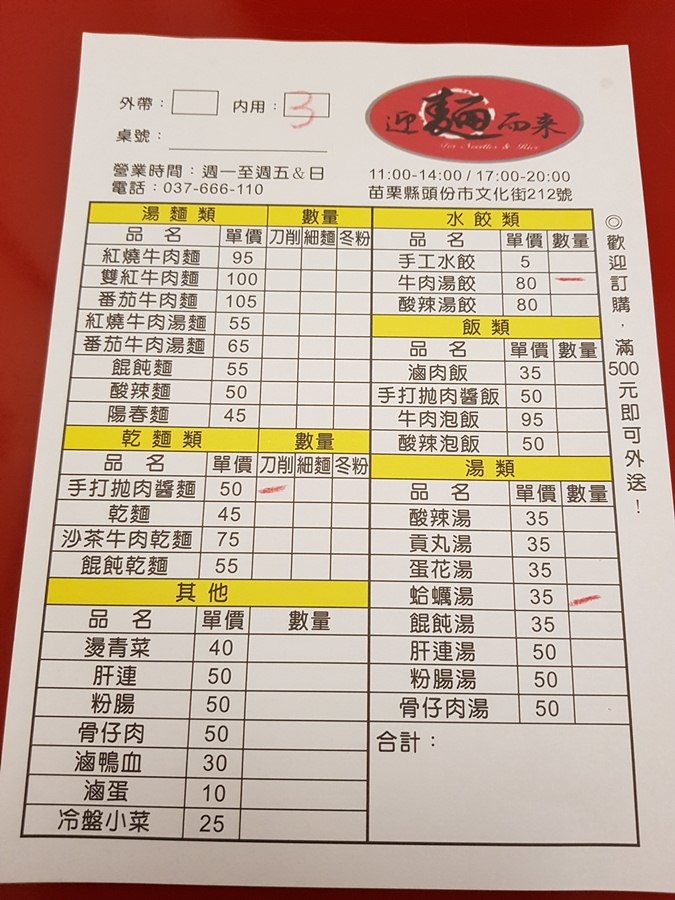 外帶： 內用：3
桌號：
迎麵而来
For Noodles & Rice
營業時間：週一至週五&日 11:00-14:00 / 17:00-20:00
電話：037-666-110 苗栗縣頭份市文化街212號
湯麵類 數量
品名 單價 刀削 細麵 冬粉
紅燒牛肉麵 95
雙紅牛肉麵 100
番茄牛肉麵 105
紅燒牛肉湯麵 55
番茄牛肉湯麵 65
餛飩麵 55
酸辣麵 50
陽春麵 45
乾麵類 數量
品名 單價 刀削 細麵 冬粉
手打拋肉醬麵 50 一
乾麵 45
沙茶牛肉乾麵 75
餛飩乾麵 55
其他
品名 單價 數量
燙青菜 40
肝連 50
粉腸 50
骨仔肉 50
滷鴨血 30
滷蛋 10
冷盤小菜 25
水餃類
品名 單價 數量
手工水餃 5
牛肉湯餃 80 一
酸辣湯餃 80
飯類
品名 單價 數量
滷肉飯 35
手打拋肉醬飯 50
牛肉泡飯 95
酸辣泡飯 50
湯類
品名 單價 數量
酸辣湯 35
貢丸湯 35
蛋花湯 35
蛤蠣湯 35 一
餛飩湯 35
肝連湯 50
粉腸湯 50
骨仔肉湯 50
合計：
◎歡迎訂購，滿500元即可外送！